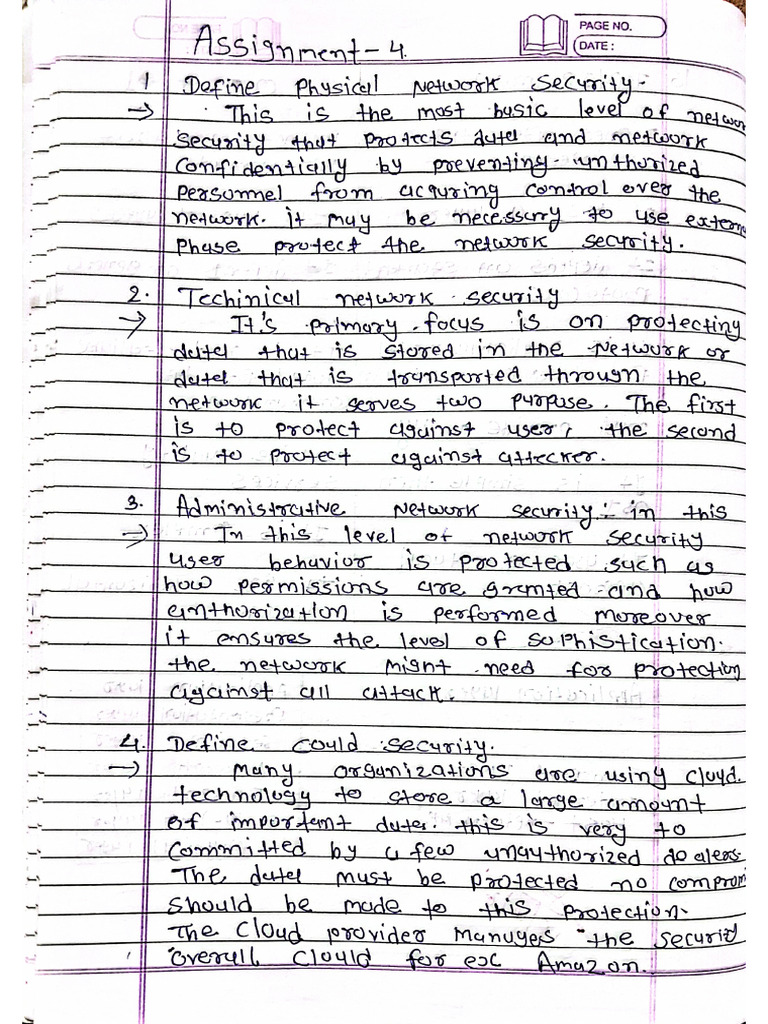 Assignment - 4.
PAGE NO.
DATE :
1 Define Physical Network Security -
→ This is the most basic level of networ
security that protects data and network
confidentially by preventing unthorized
personnel from acquring control over the
network. it may be necessary to use extern
phase protect the network security.
2. Techinical network security
→ It's primary focus is on protecting
data that is stored in the Network or
data that is transported through the
network it serves two purpose. The first
is to protect against user, the second
is to protect against attecker.
3. Administrative Network security: in this
→ In this level of network security
user behavior is protected such as
how permissions are granted and how
authorization is performed moreover
it ensures the level of sophistication.
the network might need for protection
against all attack.
4. Define could security.
→ Many organizations are using cloud.
technology to store a large amount
of important data. this is very to
committed by a few unauthorized dealers
The data must be protected no comprom
should be made to this protection.
The cloud provider manages the securit
overall clould for ex Amazon.